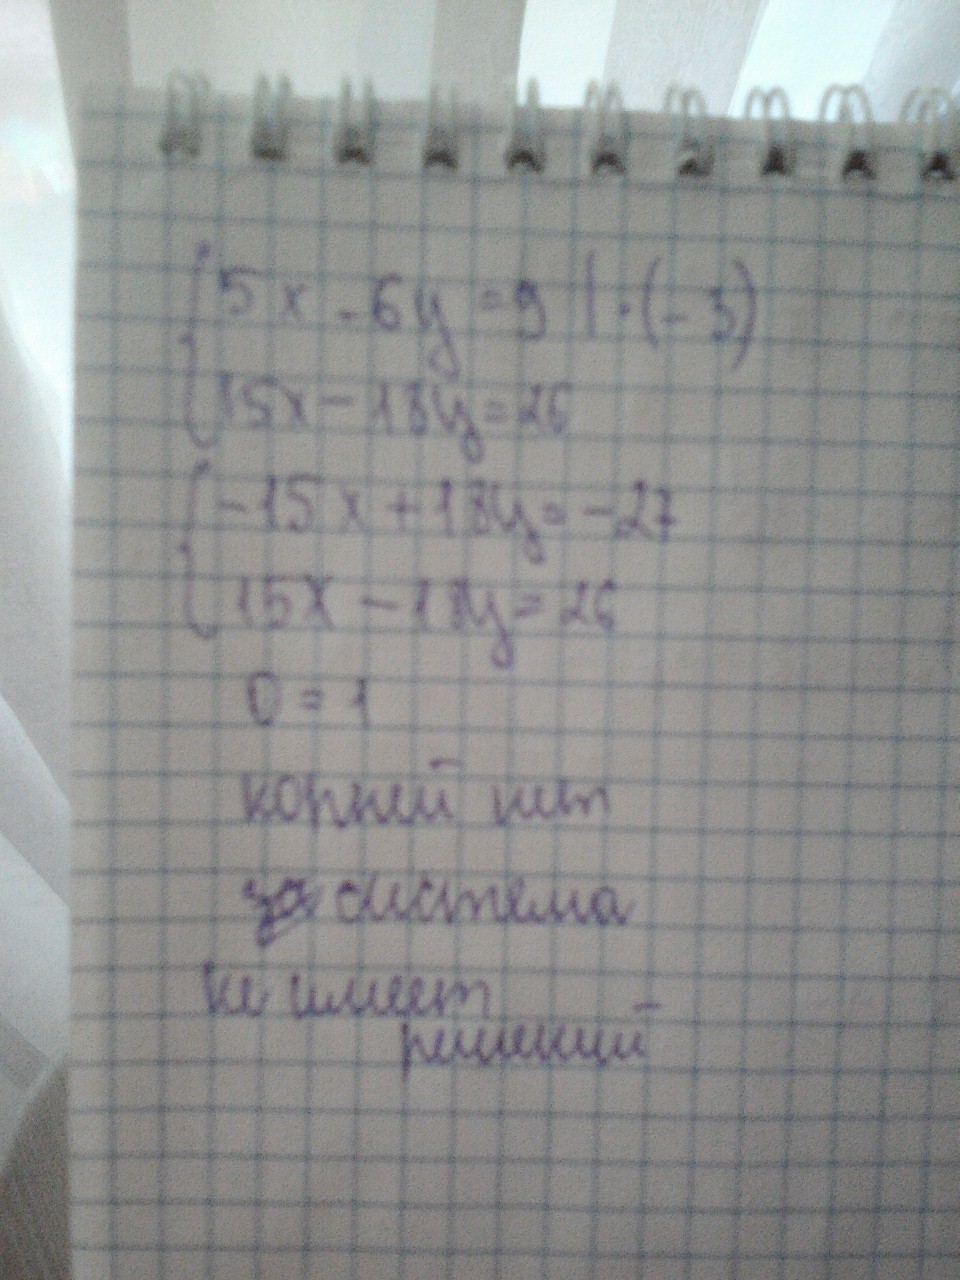 5x - 6y = 9 | · (- 3)
15x - 18y = 26
-15x + 18y = -27
15x - 18y = 26
0 = 1
корней нет
система
не имеет
решений